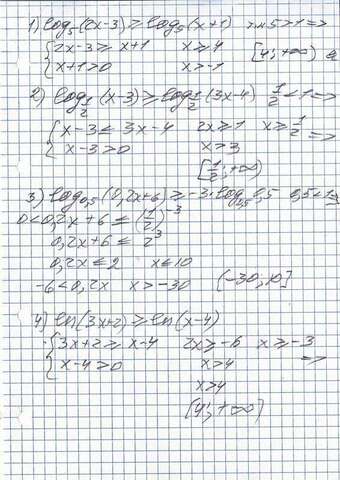 1) log₅(2x-3) ≥ log₅(x+1) т.к 5>1 =>
{ 2x-3 ≥ x+1 x ≥ 4 [4;+∞)
{ x+1>0 x>-1
2) log_{1/2}(x-3) ≥ log_{1/2}(3x-4) 1/2<1 =>
{ x-3 ≤ 3x-4 2x ≥ 1 x ≥ 1/2 =>
{ x-3>0 x>3
[1/2;+∞)
3) log_{0,5}(0,2x+6) ≥ -3·log_{0,5}0,5 0,5<1 =>
0<0,2x+6 ≤ (1/2)^{-3}
0,2x+6 ≤ 2^3
0,2x ≤ 2 x ≤ 10
-6<0,2x x>-30 (-30;10]
4) ln(3x+2) ≥ ln(x-4)
{ 3x+2 ≥ x-4 2x ≥ -6 x ≥ -3
{ x-4>0 x>4 =>
x>4
[4;+∞)